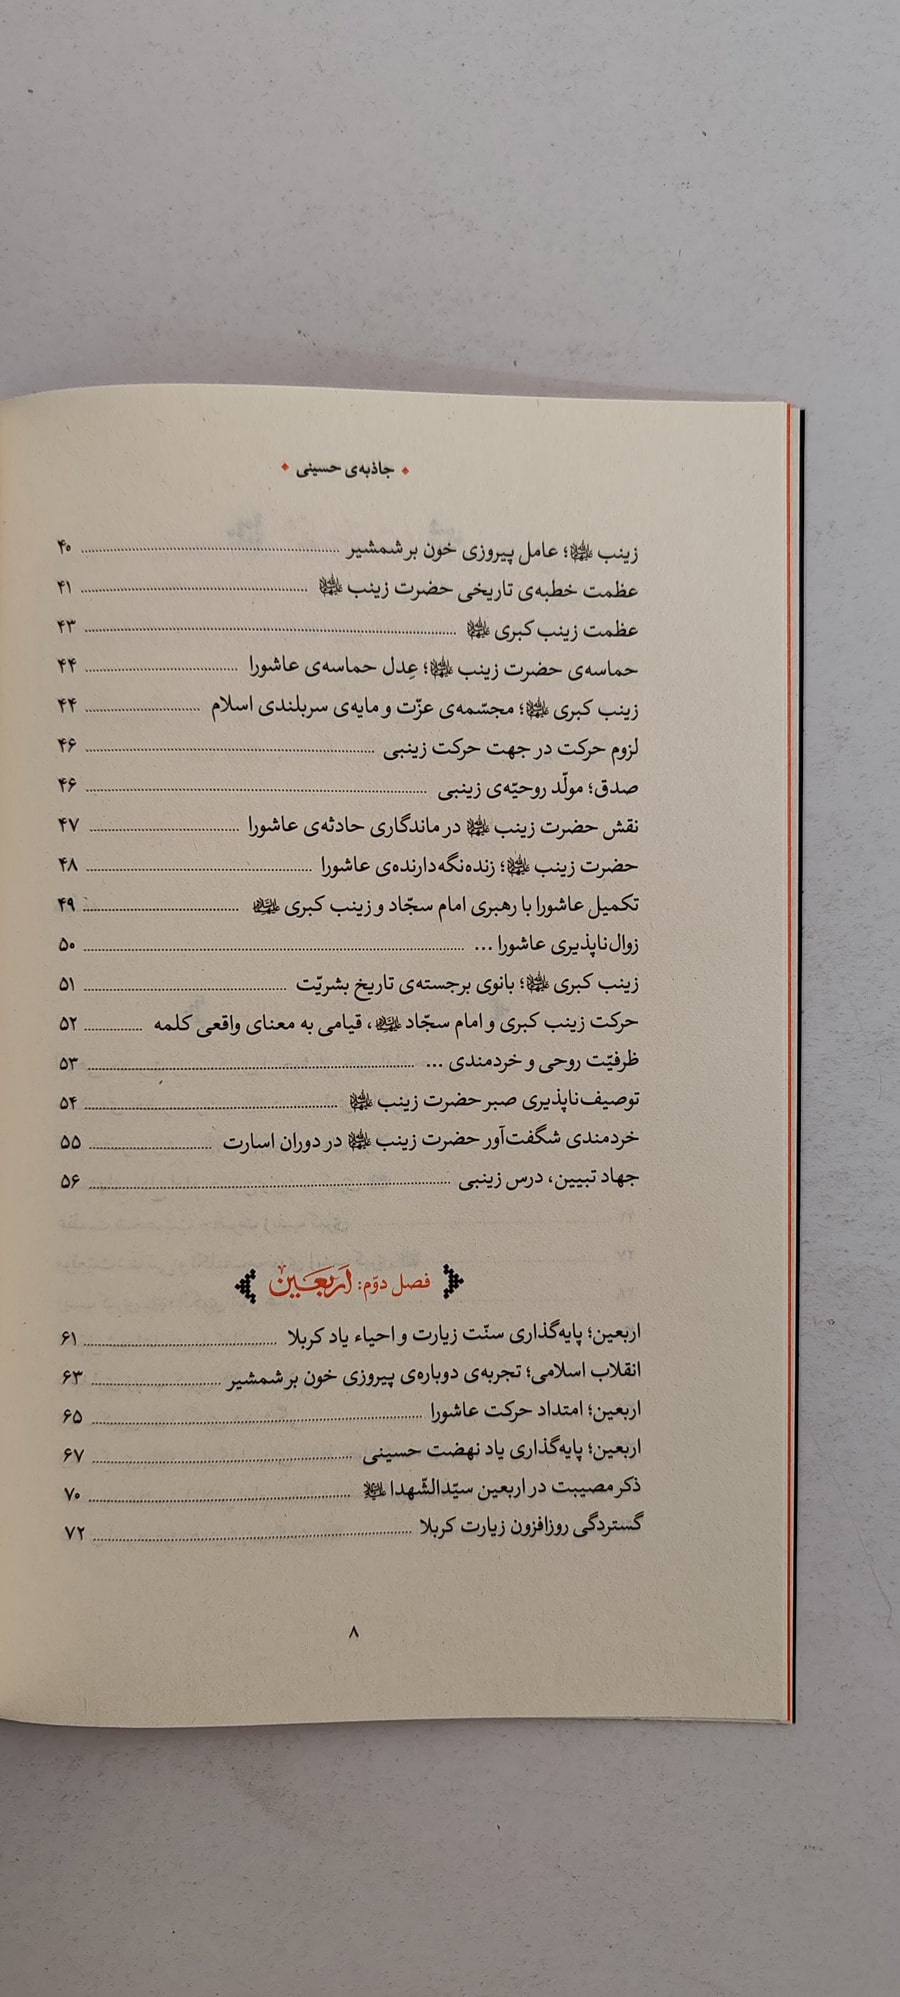 جاذبه‌ی حسینی
زینب علیهاالسلام؛ عامل پیروزی خون بر شمشیر ۴۰
عظمت خطبه‌ی تاریخی حضرت زینب علیهاالسلام ۴۱
عظمت زینب کبری علیهاالسلام ۴۳
حماسه‌ی حضرت زینب علیهاالسلام؛ عِدل حماسه‌ی عاشورا ۴۴
زینب کبری علیهاالسلام؛ مجسّمه‌ی عزّت و مایه‌ی سربلندی اسلام ۴۴
لزوم حرکت در جهت حرکت زینبی ۴۶
صدق؛ مولّد روحیّه‌ی زینبی ۴۶
نقش حضرت زینب علیهاالسلام در ماندگاری حادثه‌ی عاشورا ۴۷
حضرت زینب علیهاالسلام؛ زنده‌نگه‌دارنده‌ی عاشورا ۴۸
تکمیل عاشورا با رهبری امام سجّاد و زینب کبری علیهماالسلام ۴۹
زوال‌ناپذیری عاشورا ... ۵۰
زینب کبری علیهاالسلام؛ بانوی برجسته‌ی تاریخ بشریّت ۵۱
حرکت زینب کبری و امام سجّاد علیهماالسلام، قیامی به معنای واقعی کلمه ۵۲
ظرفیّت روحی و خردمندی ... ۵۳
توصیف‌ناپذیری صبر حضرت زینب علیهاالسلام ۵۴
خردمندی شگفت‌آور حضرت زینب علیهاالسلام در دوران اسارت ۵۵
جهاد تبیین، درس زینبی ۵۶
فصل دوّم: اَربَعین
اربعین؛ پایه‌گذاری سنّت زیارت و احیاء یاد کربلا ۶۱
انقلاب اسلامی؛ تجربه‌ی دوباره‌ی پیروزی خون بر شمشیر ۶۳
اربعین؛ امتداد حرکت عاشورا ۶۵
اربعین؛ پایه‌گذاری یاد نهضت حسینی ۶۷
ذکر مصیبت در اربعین سیّدالشّهدا علیه‌السلام ۷۰
گستردگی روزافزون زیارت کربلا ۷۲
۸